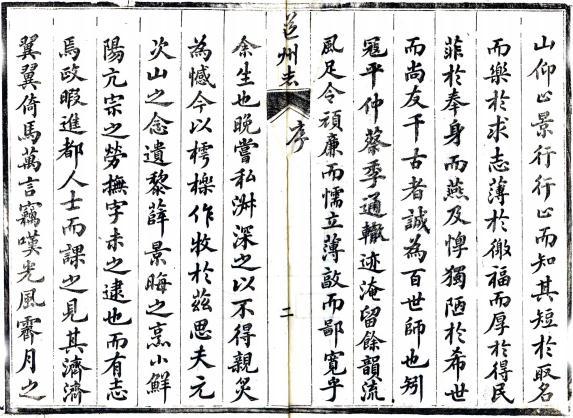 山仰止景行行止而知其短於取名
而樂於求志薄於徼福而厚於得民
菲於奉身而燕及惸獨陋於希世
而尚友千古者誠為百世師也矧
冦平仲蔡季通轍迹淹留餘韻流
風足令頑廉而懦立薄敦而鄙寬乎
道州志 序 二
余生也晚嘗私淑深之以不得親炙
為憾今以樗櫟作牧於茲思夫元
次山之念遺黎薛景晦之烹小鮮
陽亢宗之勞撫字未之逮也而有志
焉政暇進都人士而課之見其濟濟
翼翼倚馬萬言竊嘆光風霽月之